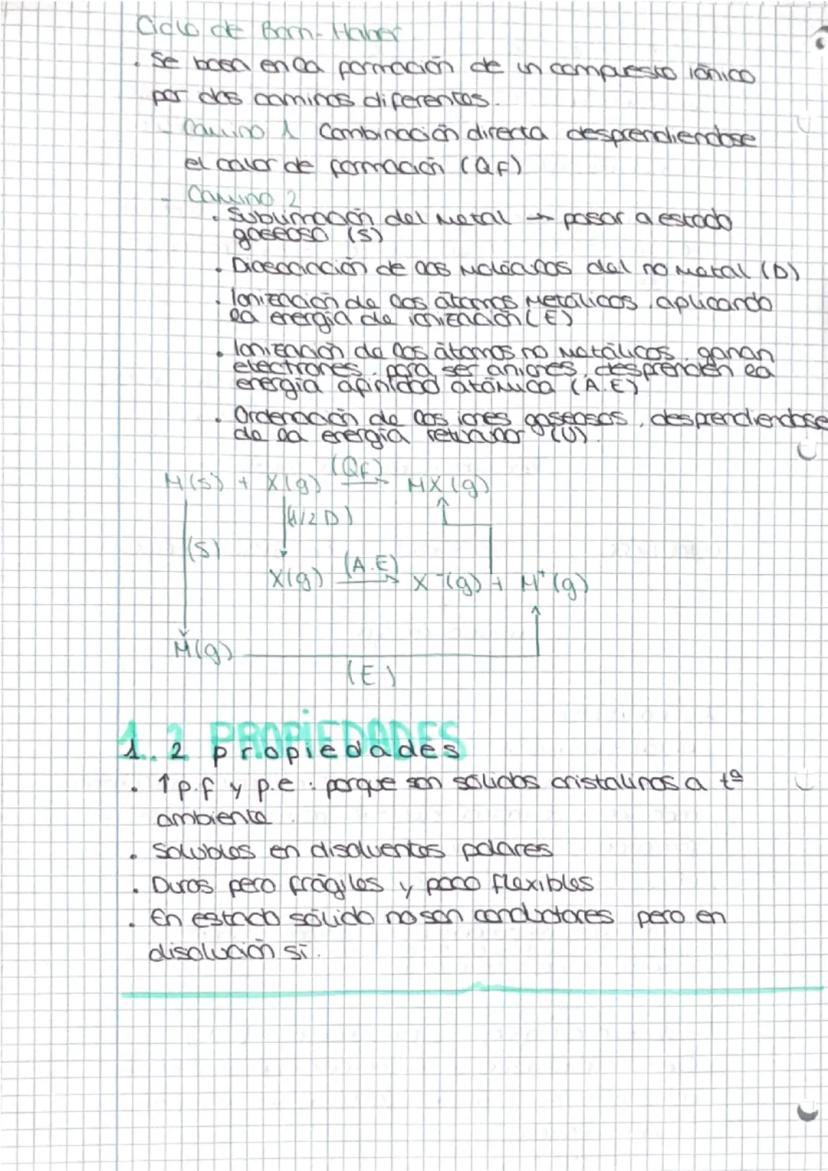 Ciclo de Born-Haber
. Se basa en la formación de un compuesto iónico
por dos caminos diferentes.
- Camino 1 Combinación directa desprendiendose
el calor de formación (QF)
- Camino 2
. Sublimación del metal → pasar a estado
gaseoso (S)
. Disociación de las moléculas del no metal (D)
. Ionización de los átomos metálicos aplicando
la energía de ionización (E)
. Ionización de los átomos no metálicos, ganan
electrones, para ser aniones, desprenden la
energía afinidad atómica (A.E)
. Ordenación de los iones gaseosos, desprendiendose
de la energía reticular (U)
M(s) + X(g) (QF) → MX(g)
(S) (1/2 D)
X(g) (A.E) → X⁻(g) + M⁺(g)
M(g)
(E)
1.2 PROPIEDADES
1.2 propiedades
. ↑p.f y p.e : porque son sólidos cristalinos a tª
ambiente.
. Solubles en disolventes polares
. Duros pero frágiles y poco flexibles
. En estado sólido no son conductores pero en
disolución sí.